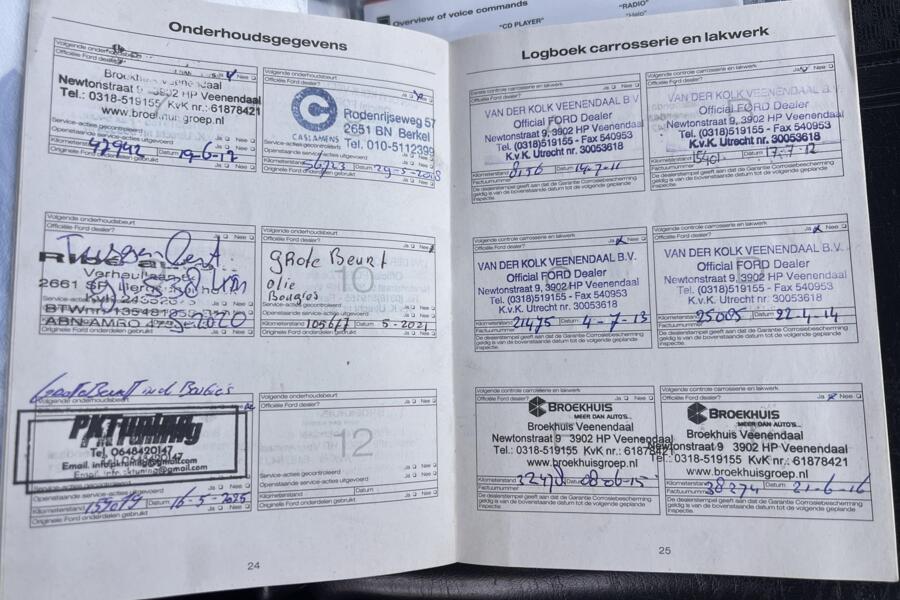 Overview of voice commands
"CD PLAYER"
"RADIO"
Onderhoudsgegevens
Volgende onderhoudsbeurt
Officiële Ford dealer? Ja Nee
Broekhuis Veenendaal
Newtonstraat 9, 3902 HP Veenendaal
Tel.: 0318-519155 KvK nr.: 61878421
www.broekhuisgroep.nl
Service-acties gecontroleerd
Openstaande service-acties uitgevoerd
Kilometerstand 47942 Datum 19-6-17
Originele Ford onderdelen gebruikt Ja Nee
Volgende onderhoudsbeurt
Officiële Ford dealer? Nee
CASTAMENS
Rodenrijseweg 57
2651 BN Berkel
Tel. 010-5112399
Service-acties gecontroleerd
Openstaande service-acties uitgevoerd
Kilometerstand Datum 29-5-2018
Originele Ford onderdelen gebruikt Ja Nee
Volgende onderhoudsbeurt
Officiële Ford dealer? Ja Nee
Tussen
2661
BTWnr.
ABN-AMRO
Originele Ford onderdelen gebruikt Ja Nee
Volgende onderhoudsbeurt
Officiële Ford dealer? Ja Nee
grote Beurt
10
olie
Bougies
Service-acties gecontroleerd Ja Nee
Openstaande service-acties uitgevoerd Ja Nee
Kilometerstand 105677 Datum 5-2021
Originele Ford onderdelen gebruikt Ja Nee
Grote Beurt incl Bougies
Volgende onderhoudsbeurt
PKTuning
Tel. 0648420147
Email. info.pktuning@gmail.com
Service-acties gecontroleerd Ja Nee
Openstaande service-acties uitgevoerd Ja Nee
Kilometerstand Datum 16-5-2025
Originele Ford onderdelen gebruikt Ja Nee
Volgende onderhoudsbeurt
Officiële Ford dealer? Ja Nee
12
Service-acties gecontroleerd Ja Nee
Openstaande service-acties uitgevoerd Ja Nee
Kilometerstand Datum
Originele Ford onderdelen gebruikt Ja Nee
24
Logboek carrosserie en lakwerk
Eerste controle carrosserie en lakwerk
Officiële Ford dealer? Ja Nee
VAN DER KOLK VEENENDAAL B.V.
Official FORD Dealer
Newtonstraat 9, 3902 HP Veenendaal
Tel. (0318)519155 - Fax 540953
K.v.K. Utrecht nr. 30053618
Kilometerstand Datum 14-7-11
Factuurnummer
De dealerstempel geeft aan dat de Garantie Corrosiebescherming
geldig is van de bovenstaande datum tot de volgende geplande
inspectie.
Volgende controle carrosserie en lakwerk
Officiële Ford dealer? Ja Nee
VAN DER KOLK VEENENDAAL B.V.
Official FORD Dealer
Newtonstraat 9, 3902 HP Veenendaal
Tel. (0318)519155 - Fax 540953
K.v.K. Utrecht nr. 30053618
Kilometerstand Datum
Factuurnummer
De dealerstempel geeft aan dat de Garantie Corrosiebescherming
geldig is van de bovenstaande datum tot de volgende geplande
inspectie.
Volgende controle carrosserie en lakwerk
Officiële Ford dealer? Ja Nee
VAN DER KOLK VEENENDAAL B.V.
Official FORD Dealer
Newtonstraat 9, 3902 HP Veenendaal
Tel. (0318)519155 - Fax 540953
K.v.K. Utrecht nr. 30053618
Kilometerstand 21475 Datum 4-7-13
Factuurnummer
De dealerstempel geeft aan dat de Garantie Corrosiebescherming
geldig is van de bovenstaande datum tot de volgende geplande
inspectie.
Volgende controle carrosserie en lakwerk
Officiële Ford dealer? Ja Nee
VAN DER KOLK VEENENDAAL B.V.
Official FORD Dealer
Newtonstraat 9, 3902 HP Veenendaal
Tel. (0318)519155 - Fax 540953
K.v.K. Utrecht nr. 30053618
Kilometerstand 25095 Datum 22-4-14
Factuurnummer
De dealerstempel geeft aan dat de Garantie Corrosiebescherming
geldig is van de bovenstaande datum tot de volgende geplande
inspectie.
Volgende controle carrosserie en lakwerk
Officiële Ford dealer? Ja Nee
BROEKHUIS
MEER DAN AUTO'S...
Broekhuis Veenendaal
Newtonstraat 9 3902 HP Veenendaal
Tel.: 0318-519155 KvK nr.: 61878421
www.broekhuisgroep.nl
Kilometerstand Datum 08-06-15
Factuurnummer
De dealerstempel geeft aan dat de Garantie Corrosiebescherming
geldig is van de bovenstaande datum tot de volgende geplande
inspectie.
Volgende controle carrosserie en lakwerk
Officiële Ford dealer? Ja Nee
BROEKHUIS
MEER DAN AUTO'S...
Broekhuis Veenendaal
Newtonstraat 9 3902 HP Veenendaal
Tel.: 0318-519155 KvK nr.: 61878421
www.broekhuisgroep.nl
Kilometerstand 38274 Datum 21-6-16
Factuurnummer
De dealerstempel geeft aan dat de Garantie Corrosiebescherming
geldig is van de bovenstaande datum tot de volgende geplande
inspectie.
25